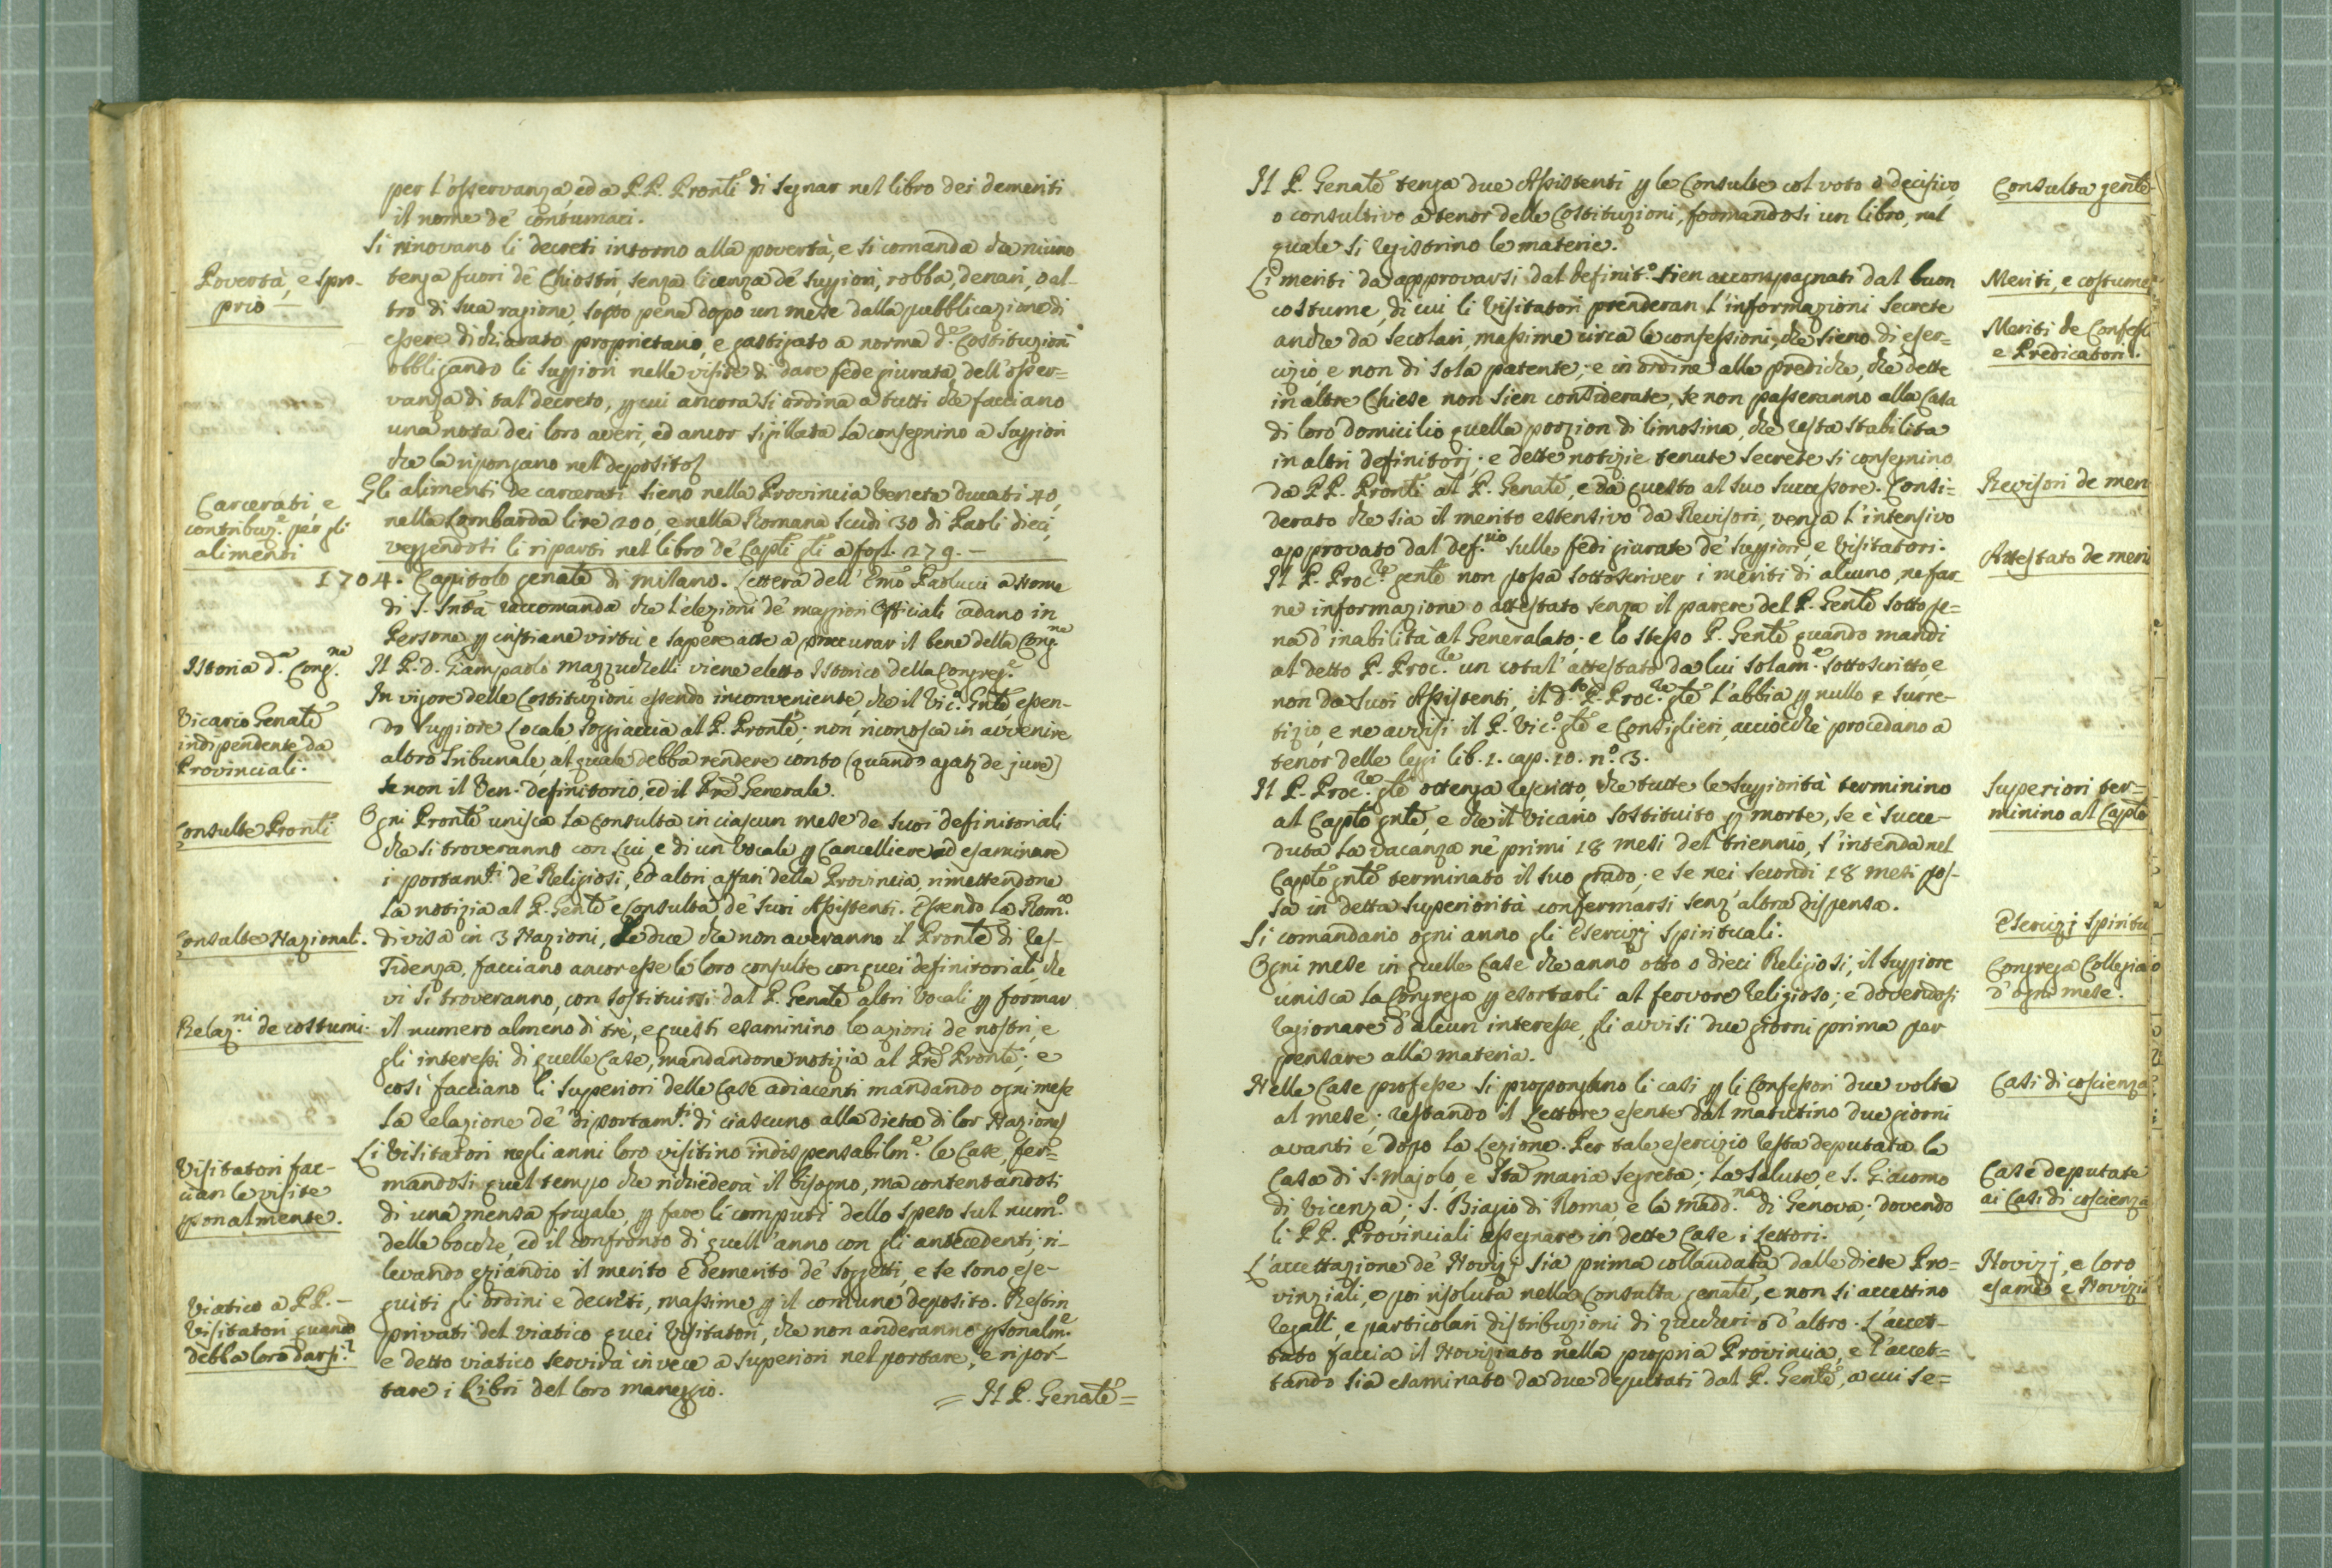 per l'osservanza, ed a P.P. Pronli di segnar nel libro dei demeriti
il nome de' contumaci.
Si rinovano li decreti intorno alla povertà, e si comanda che niuno
Povertà, e spro-
prio
tenga fuori de' Chiostri, senza licenza de' Suppiori, robba, denari, o al-
tro di sua ragione, sotto pena dopo un mese dalla pubblicazione di
essere dichiarato proprietario, e gastigato a norma d.e Costituzioni
obbligando li Suppiori nelle visite di dare fede giurata dell'osser=
vanza di tal decreto, p cui ancora si ordina a tutti che facciano
una nota dei loro averi, ed ancor sigillata la consegnino a Suppiori
che la ripongano nel deposito
Carcerati, e
contribuz.e per gli
alimenti
Gli alimenti de carcerati sieno nella Provincia Veneta ducati 40,
nella Lombarda lire 200, e nella Romana Scudi 30 di Paoli dieci,
veggendosi li riparti nel libro de' Capli gli a fogl. 279. —
1704. Capitolo genale di Milano. Lettera dell'Emo Paolucci a nome
di S. Sntà raccomanda che l'elezioni de' maggiori Officiali cadano in
Persone p cristiane virtù e sapere atte a proccurar il bene della Cong.ne
Istoria d.a Cong.ne
Il P. D. Giampaolo Mazzuchelli viene eletto Istorico della Congreg.e
In vigore delle Costituzioni essendo inconveniente, che il Vic.o Gnle essen-
Vicario Genale
indipendente da
Provinciali.
do Suppiore Locale soggiaccia al P. Pronle; non riconosca in avvenire
altro Tribunale, al quale debba rendere conto (quando agatz de jure)
se non il Ven. Definitorio, ed il Pre Generale.
Consulte Pronli
Ogni Pronle unisca la Consulta in ciascun mese de suoi definitoriali
che si troveranno con Lui, e di un Vocale p Cancelliere ad esaminare
i portam.ti de' Religiosi, ed altri affari della Provincia, rimettendone
la notizia al P. Genle e Consulta de' suoi Assistenti. Essendo la Rom.a
Consulte Nazionali.
divisa in 3 Nazioni, le due che non averanno il Pronle di res-
sidenza, facciano ancor esse le loro consulte con quei definitoriali, che
vi si troveranno, con sostituirsi dal P. Genale altri Vocali p formar
Relaz.ni de costumi.
il numero almeno di tre, e questi esaminino le azioni de' nostri, e
gli interessi di quelle Case, mandandone notizia al Pre Pronle; e
così facciano li Superiori delle Case adiacenti mandando ogni mese
la relazione de' diportam.ti di ciascuno alla dieta di lor Nazione
Visitatori fac-
cian le visite
psonalmente.
Li Visitatori negli anni loro visitino indispensabilm.e le Case, fer=
mandosi quel tempo che richiederà il bisogno, ma contentandosi
di una mensa frugale, p fare li computi dello speso sul num.o
delle bocche, ed il confronto di quell'anno con gli antecedenti, ri-
levando eziandio il merito e demerito de' soggetti, e se sono ese-
Viatico a P.P. —
Visitatori quando
debba loro darsi?
guiti gli ordini e decreti, massime p il comune deposito. Restin
privati del viatico quei Visitatori, che non anderanno psonalm.e
e detto viatico servirà in vece a superiori nel portare, e ripor-
tare i Libri del loro maneggio.
= Il P. Genale =
Il P. Genale tenga due Assistenti p le Consulte col voto o decisivo
Consulta genle
o consultivo a tenor delle Costituzioni, formandosi un libro, nel
quale si registrino le materie.
Li meriti da approvarsi dal definit.o sien accompagnati dal buon
Meriti, e costume
costume, di cui li Visitatori prenderan l'informazioni secrete
anche da secolari, massime circa le confessioni, che sieno di eser=
Meriti de Confess
e Predicatori.
cizio e non di sola patente; e in ordine alle prediche, che dette
in altre Chiese non sien considerate, se non passeranno alla Casa
di loro domicilio quella porzion di limosina, che resta stabilita
in altri definitorj; e dette notizie tenute secrete si consegnino
da P.P. Pronli al P. Genale, e da questo al suo successore. Consi=
Revisori de meri
derato che sia il merito estensivo da Revisori, venga l'intensivo
approvato dal def.rio sulle fedi giurate de' Suppiori, e Visitatori.
Attestato de meri
Il P. Proc.re genle non possa sottoscriver i meriti di alcuno, ne far-
ne informazione o attestato senza il parere del P. Genle sotto pe=
na d'inabilità al Generalato; e lo stesso P. Genle quando mandi
al detto P. Proc.re un cotal'attestato da lui solam.e sottoscritto, e
non da suoi Assistenti, il d.to P. Proc.re gle l'abbia p nullo e surre-
tizio, e ne avvisi il P. Vic.o gle e Consiglieri, acciocchè procedano a
tenor delle leggi lib. 1. cap. 10. n.o 3.
Il P. Proc.re gle ottenga rescritto, che tutte le Suppiorità terminino
Superiori ter=
minino al Caplo
al Caplo gnle, e che il Vicario sostituito p morte, se è succe-
duta la vacanza ne' primi 18 mesi del triennio, s'intenda nel
Caplo gnle terminato il suo grado; e se nei secondi 18 mesi pos-
sa in detta Superiorità confermarsi senz'altra dispensa.
Si comandano ogni anno gli Esercizj Spirituali.
Esercizj spiritu
Ogni mese in quelle Case che anno otto o dieci Religiosi, il Suppiore
Congrega Collegia
d'ogni mese.
unisca la Congrega p esortarli al fervore religioso; e dovendosi
ragionare d'alcun interesse, gli avvisi due giorni prima per
pensare alla materia.
Nelle Case professe si propongano li casi p li Confessori due volte
Casi di coscienza
al mese; restando il Lettore esente dal matutino due giorni
avanti e dopo la Lezione. Per tale esercizio resta deputata le
Casa di S. Majolo, e Sta Maria Segreta; la Salute, e S. Giacomo
Case deputate
ai Casi di coscienza
di Vicenza; S. Biagio di Roma, e la Madd.na di Genova; dovendo
li P.P. Provinciali assegnare in dette Case i Lettori.
L'accettazione de' Novizj sia prima collaudata dalle diete Pro=
Novizj, e loro
esame e Novizia
vinziali, e poi risoluta nella Consulta genale, e non si accettino
regalli, e particolari distribuzioni di zuccheri o d'altro. L'accet-
tato faccia il Noviziato nella propria Provincia, e l'accet=
tando sia esaminato da due deputati dal P. Genle, a cui se=